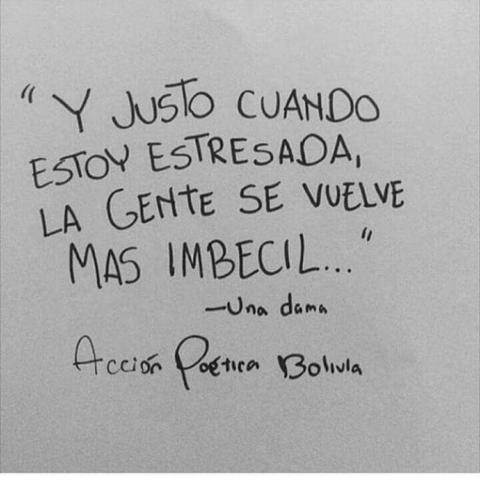 “Y JUSTO CUANDO
ESTOY ESTRESADA,
LA GENTE SE VUELVE
MAS IMBECIL...”
—Una dama
Acción Poética Bolivia